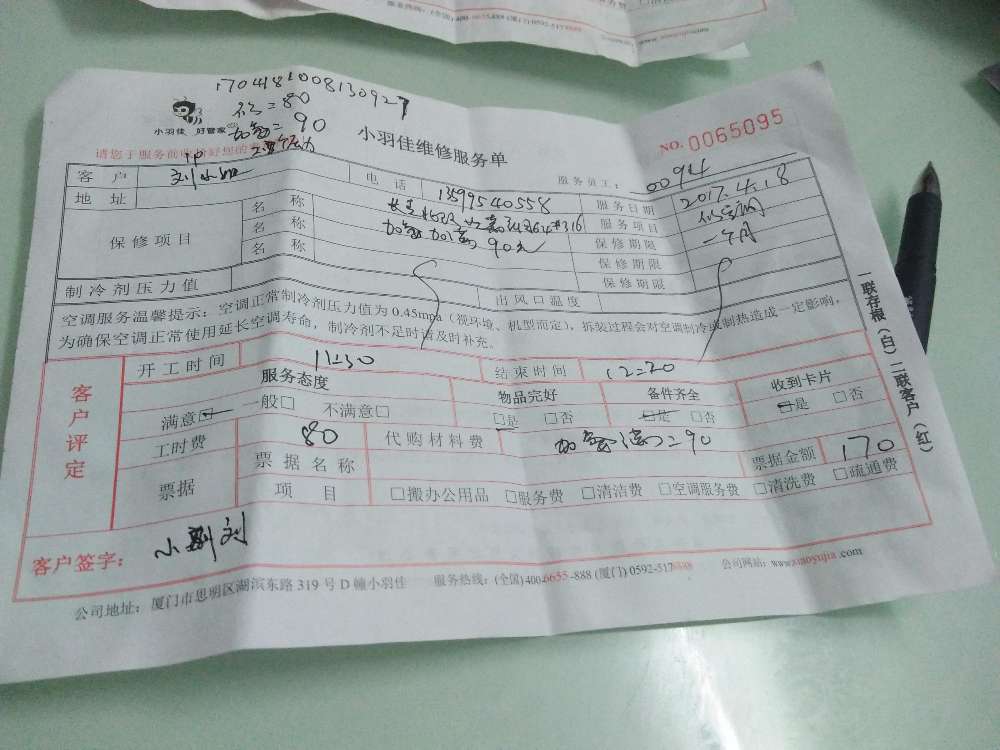 服务热线:(全国)400-6655-888 (厦门) 0592-517
1704181008130927
=80
加氟=90
小羽佳 好管家
小羽佳维修服务单
NO. 0065095
请您于服务前收好您的
客户 刘小姐 电话 13599540558 服务员工: 0094
地址 服务日期 2017.4.18
保修项目
名称 服务项目
名称 加氟 90元 保修期限 一个月
名称 保修期限
保修期限
制冷剂压力值 出风口温度
空调服务温馨提示:空调正常制冷剂压力值为0.45mpa(视环境、机型而定),拆装过程会对空调制冷或制热造成一定影响,
为确保空调正常使用延长空调寿命,制冷剂不足时请及时补充。
客户评定
开工时间 11=30 结束时间 12=20
服务态度 物品完好 备件齐全 收到卡片
满意□ 一般□ 不满意□ □是 □否 □是 □否 □是 □否
工时费 80 代购材料费 =90 票据金额 170
票据 票据名称
项目 □搬办公用品 □服务费 □清洁费 □空调服务费 □清洗费 □疏通费
客户签字:
公司地址:厦门市思明区湖滨东路319号D幢小羽佳 服务热线:(全国)400-6655-888 (厦门) 0592-517 公司网站:www.xiaoyujia.com
一联存根(白)二联客户(红)